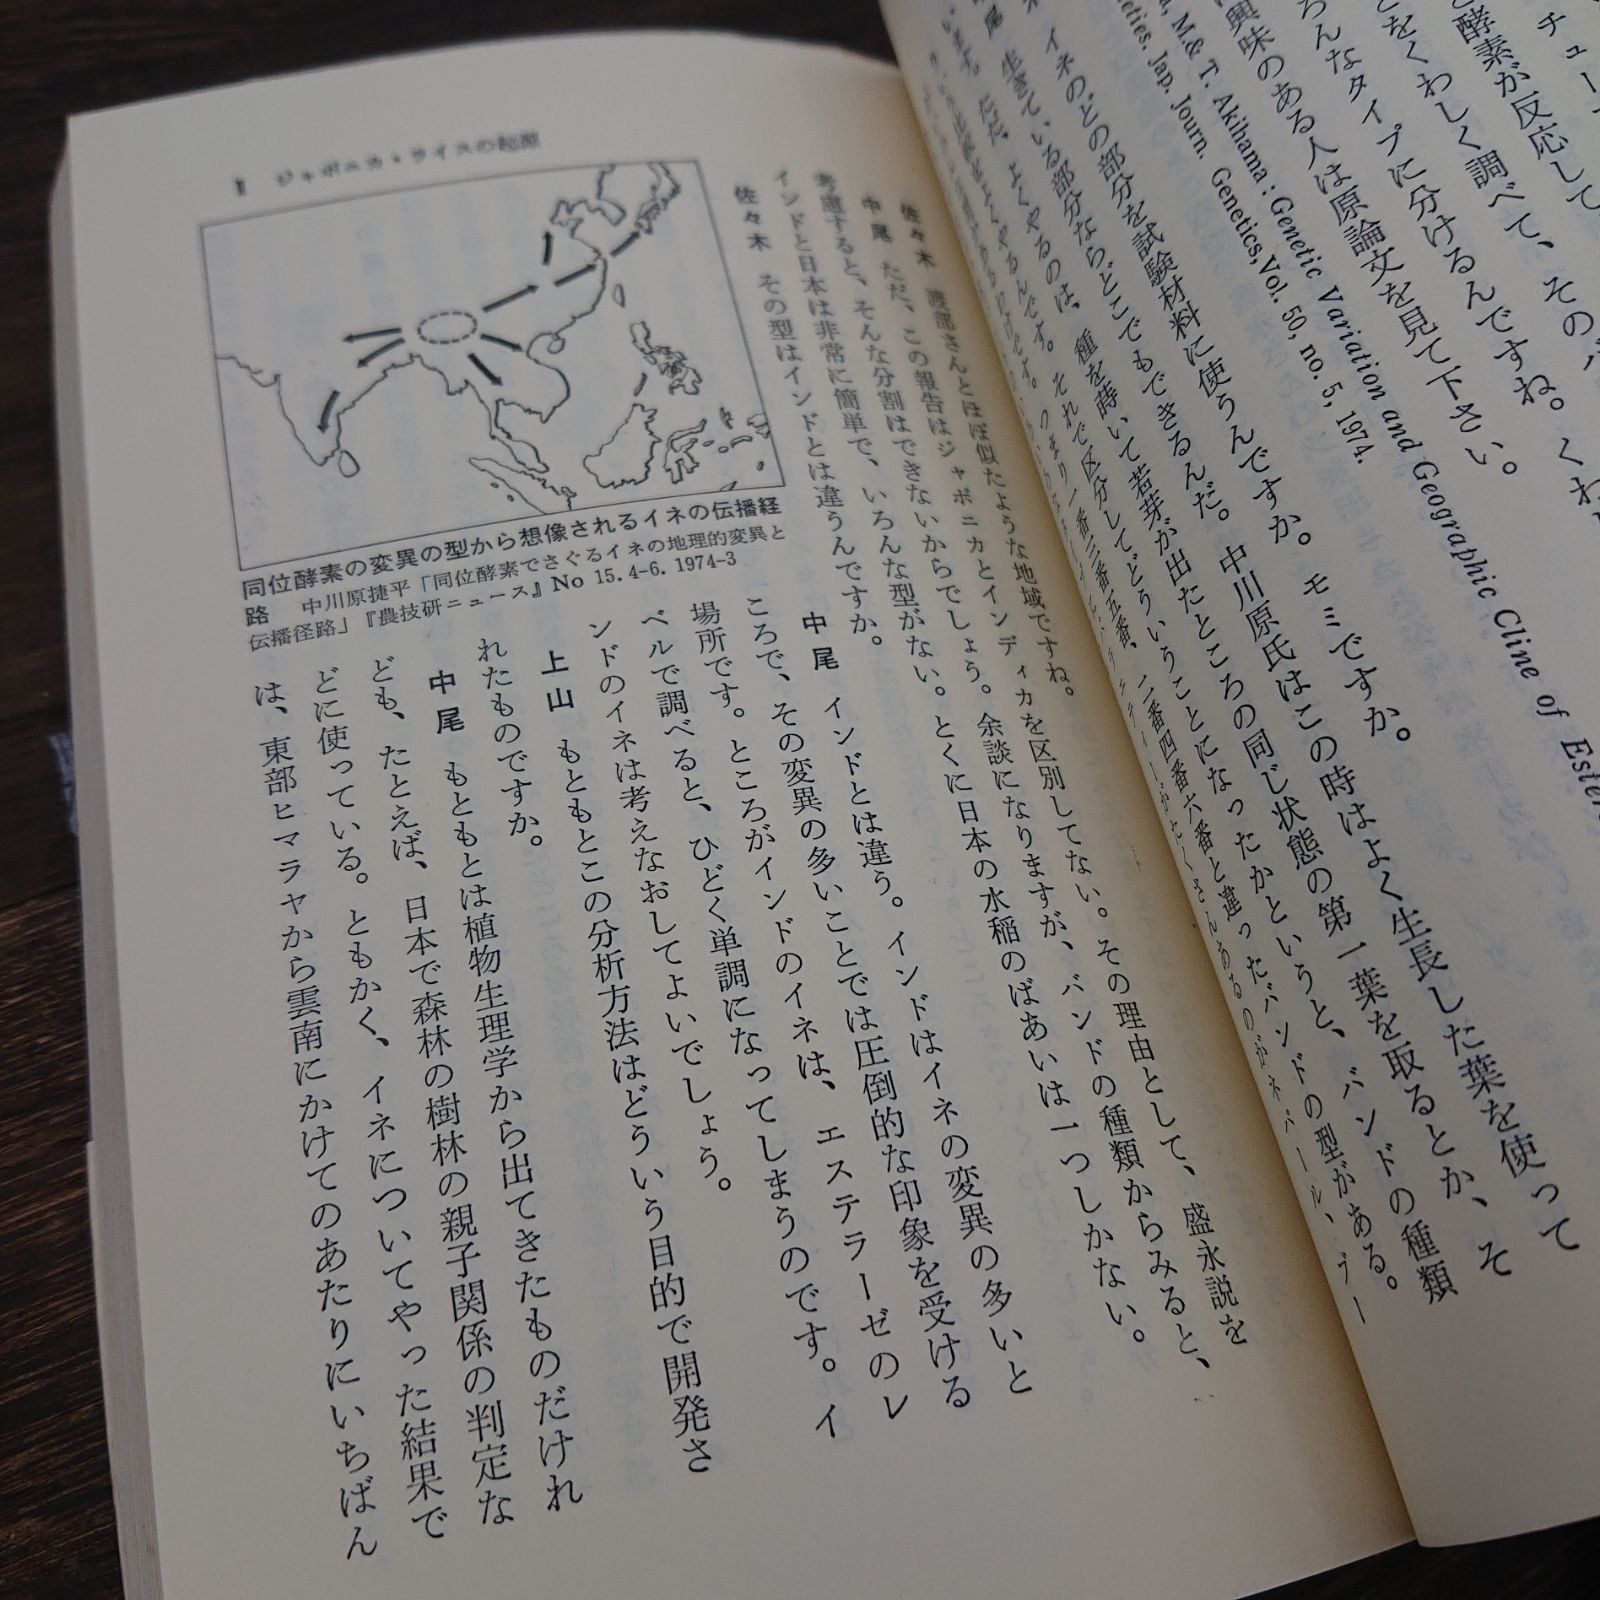 チュー
酵素が反応して
とをくわしく調べて、その
ろんなタイプに分けるんですね。くわ
興味のある人は原論文を見て下さい。
M. & T. Akihama : Genetic Variation and Geographic Cline of Ester
netics. Jap. Journ. Genetics, Vol. 50, no. 5, 1974.
イネのどの部分を試験材料に使うんですか。モミですか。
尾　生きている部分なら、どこでもできるんだ。中川原氏はこの時はよく生長した葉を使って
います。ただ、よくやるのは、種を蒔いて若芽が出たところの同じ状態の第一葉を取るとか、そ
それで区分してどういうことになったかというと、バンドの種類
つまり一番三番五番、二番四番六番と違ったバンドの型がある。
たくさんあるのがネパール、ブー
佐々木　渡部さんとほぼ似たような地域ですね。
中尾　ただ、この報告はジャポニカとインディカを区別してない。その理由として、盛永説を
考慮すると、そんな分割はできないからでしょう。余談になりますが、バンドの種類からみると、
インドと日本は非常に簡単で、いろんな型がない。とくに日本の水稲のばあいは一つしかない。
佐々木　その型はインドとは違うんですか。
中尾　インドとは違う。インドはイネの変異の多いと
ころで、その変異の多いことでは圧倒的な印象を受ける
場所です。ところがインドのイネは、エステラーゼのレ
ベルで調べると、ひどく単調になってしまうのです。イ
ンドのイネは考えなおしてよいでしょう。
上山　もともとこの分析方法はどういう目的で開発さ
れたものですか。
中尾　もともとは植物生理学から出てきたものだけれ
ども、たとえば、日本で森林の樹林の親子関係の判定な
どに使っている。ともかく、イネについてやった結果で
は、東部ヒマラヤから雲南にかけてのあたりにいちばん
ジャポニカ・ライスの起源
同位酵素の変異の型から想像されるイネの伝播経
路　中川原捷平「同位酵素でさぐるイネの地理的変異と
伝播径路」『農技研ニュース』No 15. 4-6. 1974-3